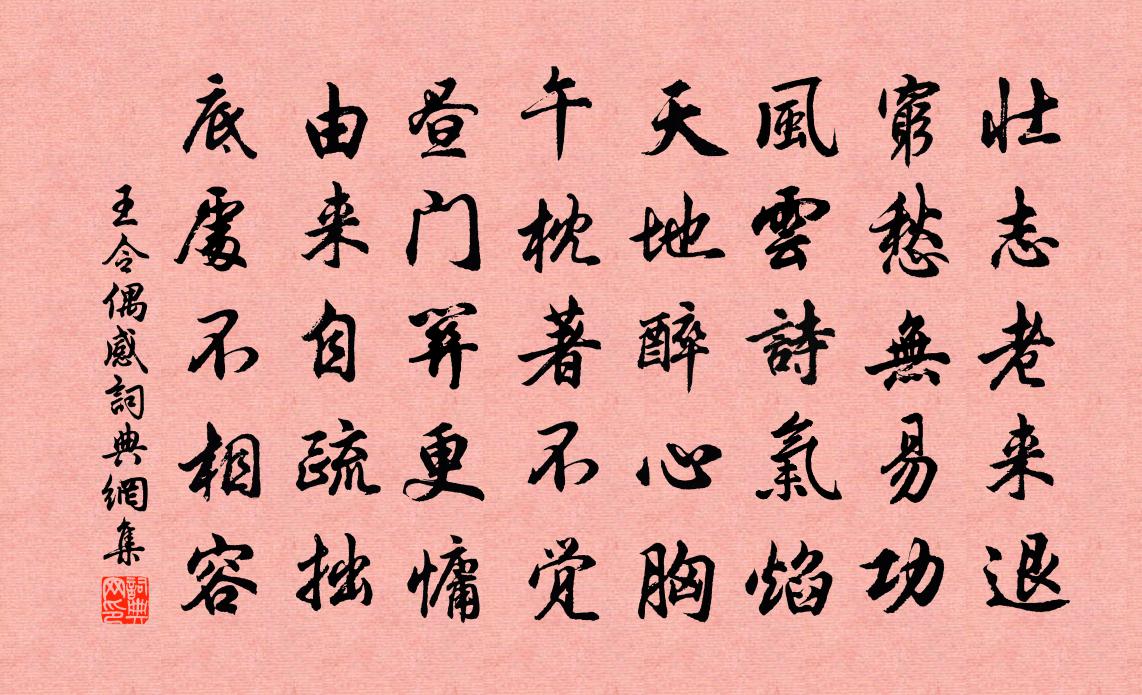 壮志老来退
窮愁無易功
風雲詩氣焰
天地醉心胸
午枕著不覺
昼门开更慵
由来自疏拙
底處不相容
王令偶感詞典網集
詞典网印